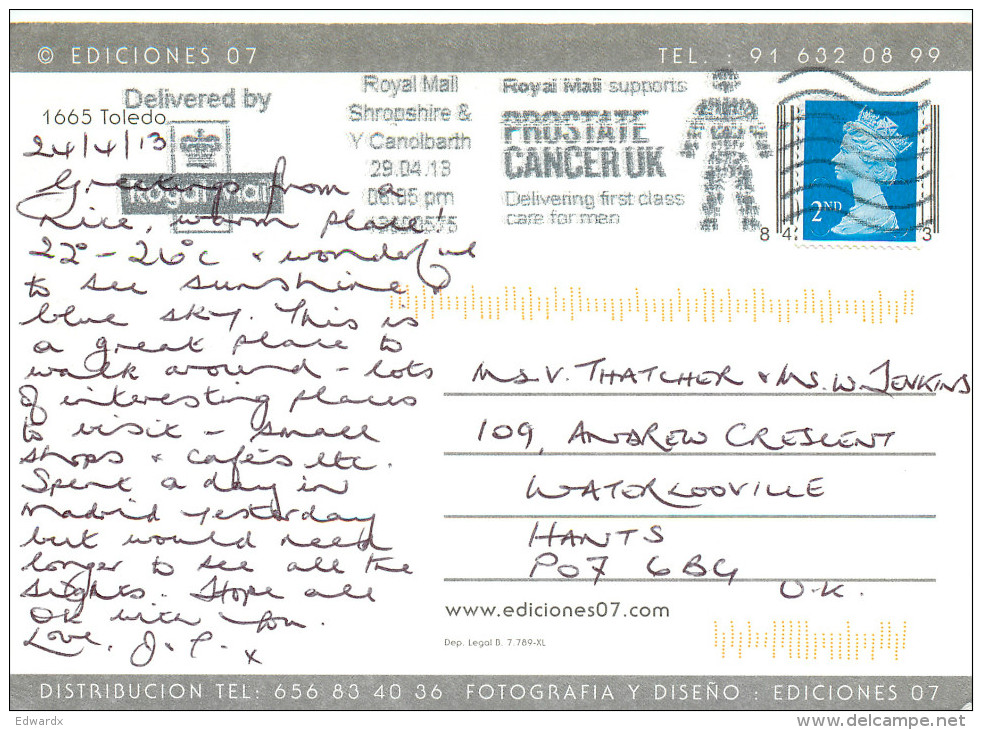 © EDICIONES 07
TEL. 91 632 08 99
1665 Toledo
Delivered by
Royal Mail
Royal Mail
Shropshire &
Y Canolbarth
29.04.13
pm
Royal Mail supports
PROSTATE
CANCER UK
Delivering first class
care for men
2ND
24/4/13
Greetings from a
nice, warm place!
22° - 26°c & wonderful
to see sunshine &
blue sky. This is
a great place to
walk around - lots
of interesting places
to visit - small
shops & cafés etc.
Spent a day in
Madrid yesterday
but would need
longer to see all the
sights. Hope all
OK with you.
Love, J. x
MS. V. THATCHER & MS. W. JENKINS
109, ANDREW CRESCENT
WATERLOOVILLE
HANTS
PO7 6BG
U.K.
www.ediciones07.com
Dep. Legal B. 7.789-XL
DISTRIBUCION TEL: 656 83 40 36 FOTOGRAFIA Y DISEÑO : EDICIONES 07
Edwardx
delcampe.net